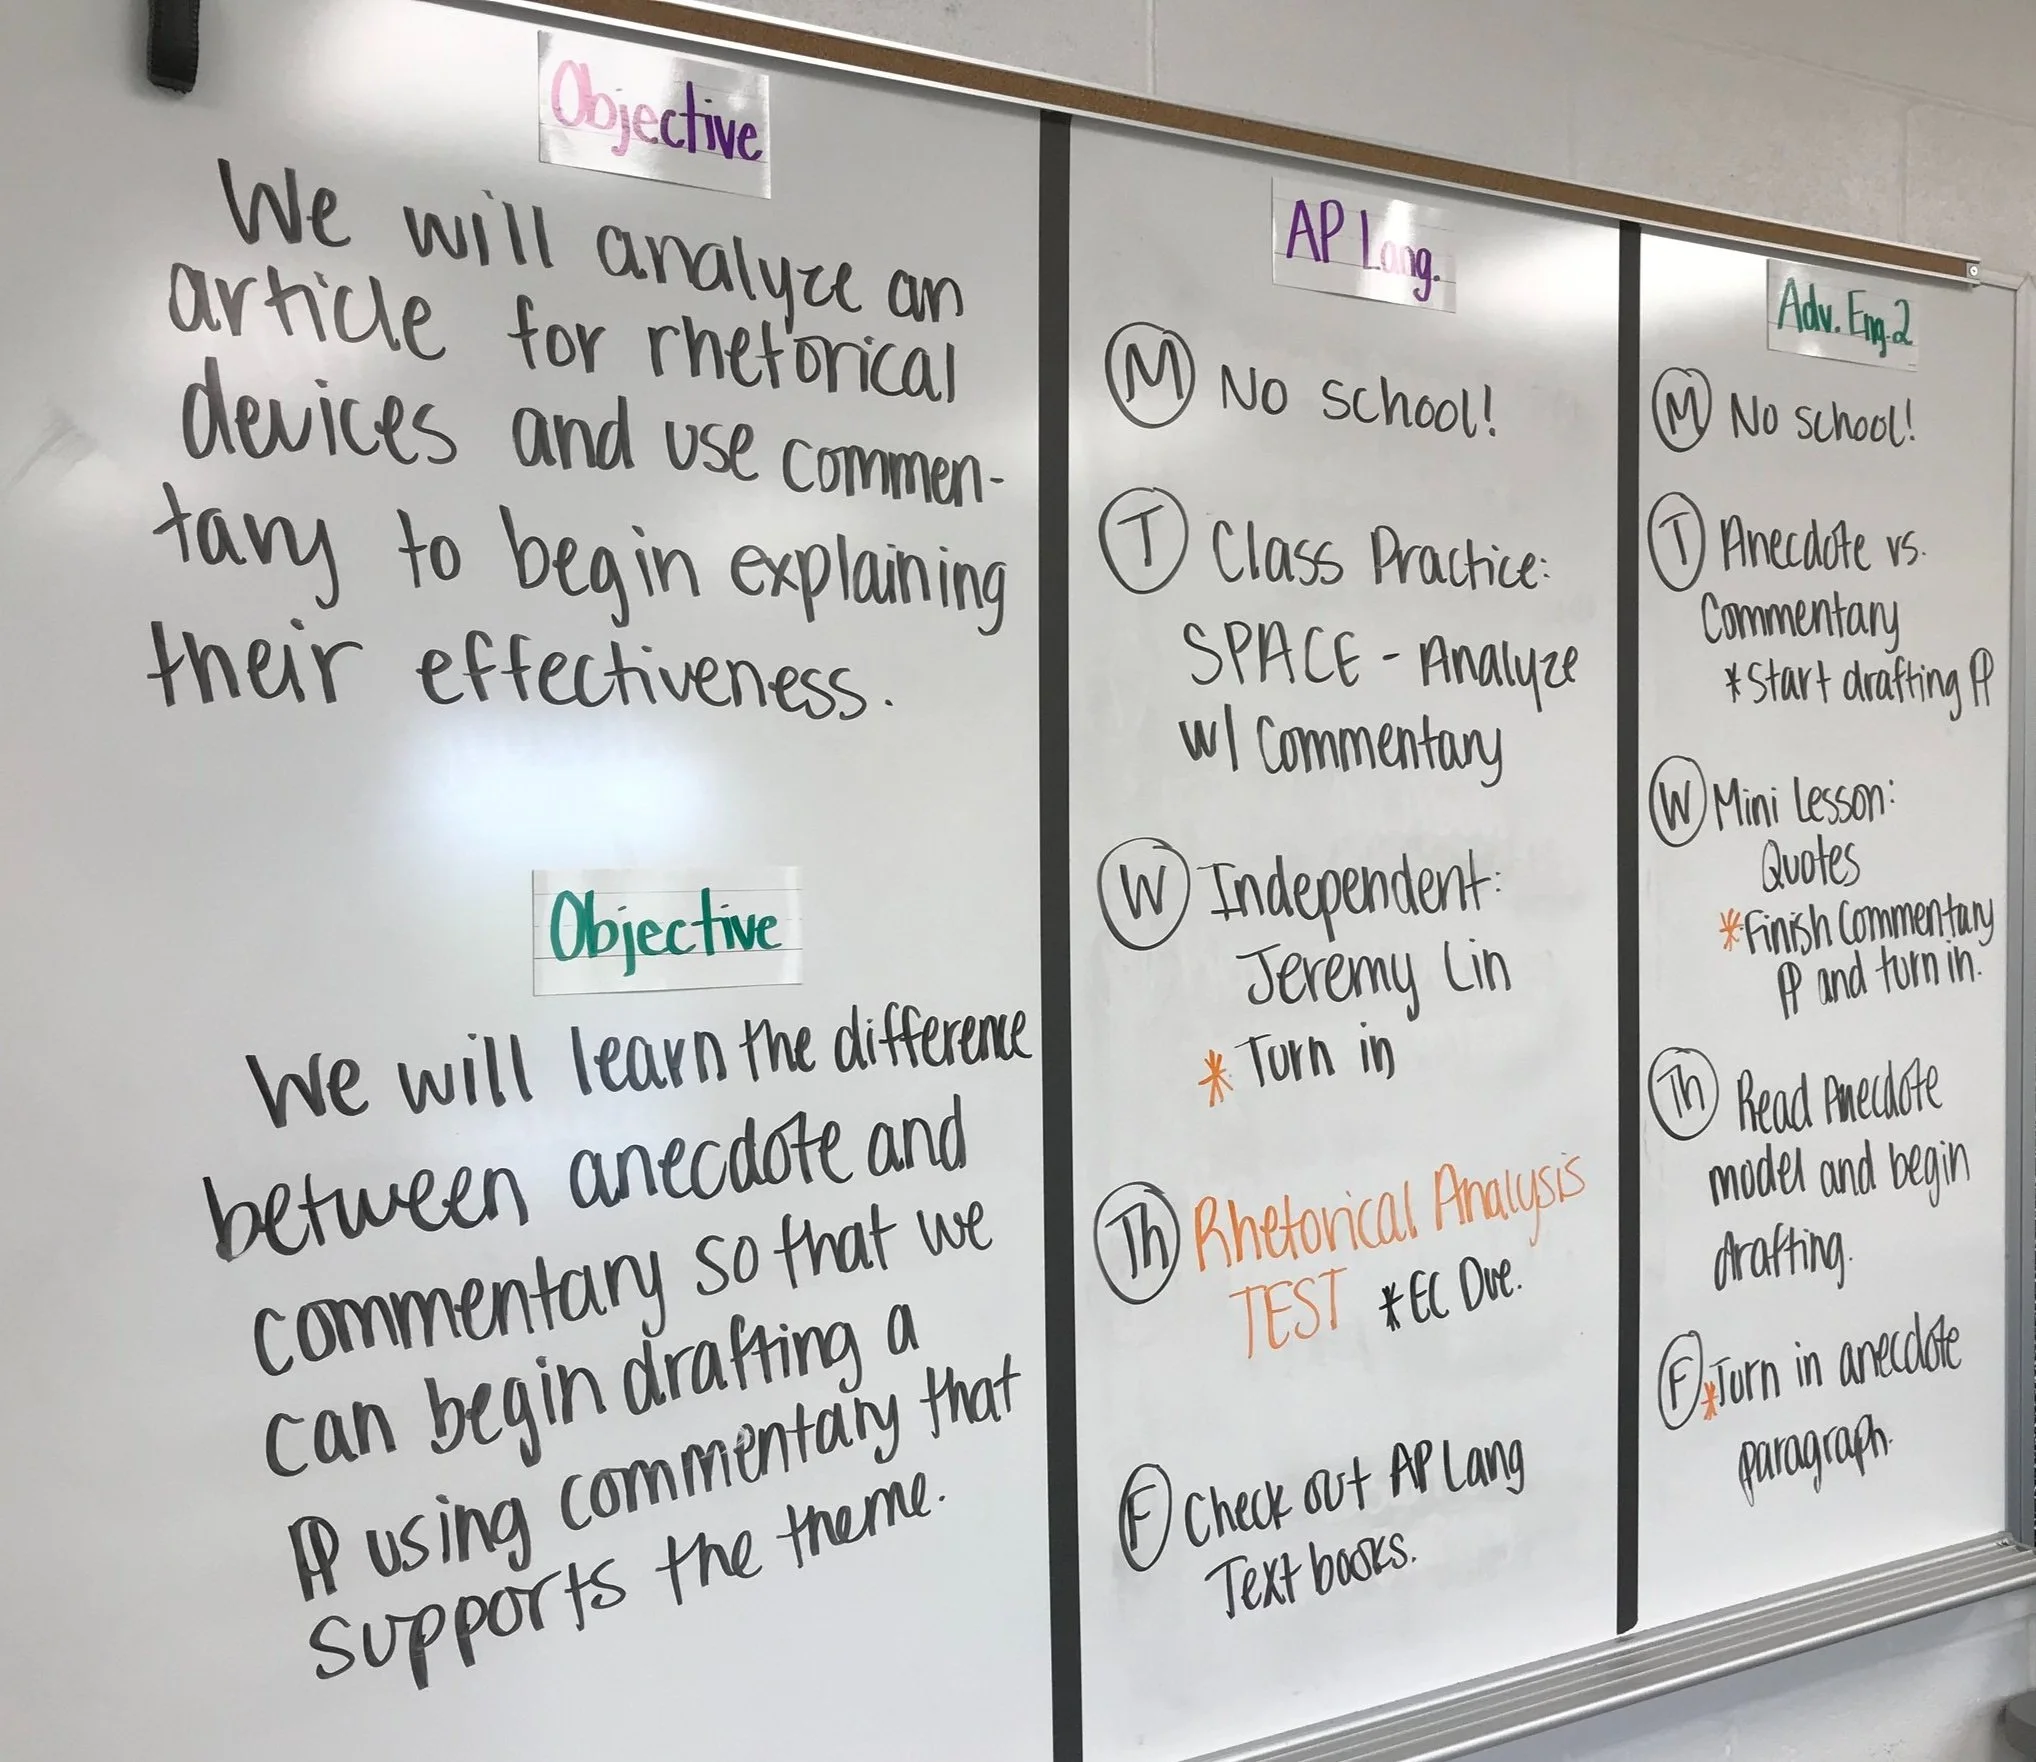 Objective
We will analyze an
article for rhetorical
devices and use commen-
tary to begin explaining
their effectiveness.
Objective
We will learn the difference
between anecdote and
commentary so that we
can begin drafting a
PP using commentary that
supports the theme.
AP Lang.
M No school!
T Class Practice:
SPACE - Analyze
w/ Commentary
W Independent:
Jeremy Lin
* Turn in
Th Rhetorical Analysis
TEST *EC Due.
F Check out AP Lang
Text books.
Adv. Eng. 2
M No school!
T Anecdote vs.
Commentary
*Start drafting PP
W Mini Lesson:
Quotes
*Finish Commentary
PP and turn in.
Th Read Anecdote
model and begin
drafting.
F *Turn in anecdote
paragraph.